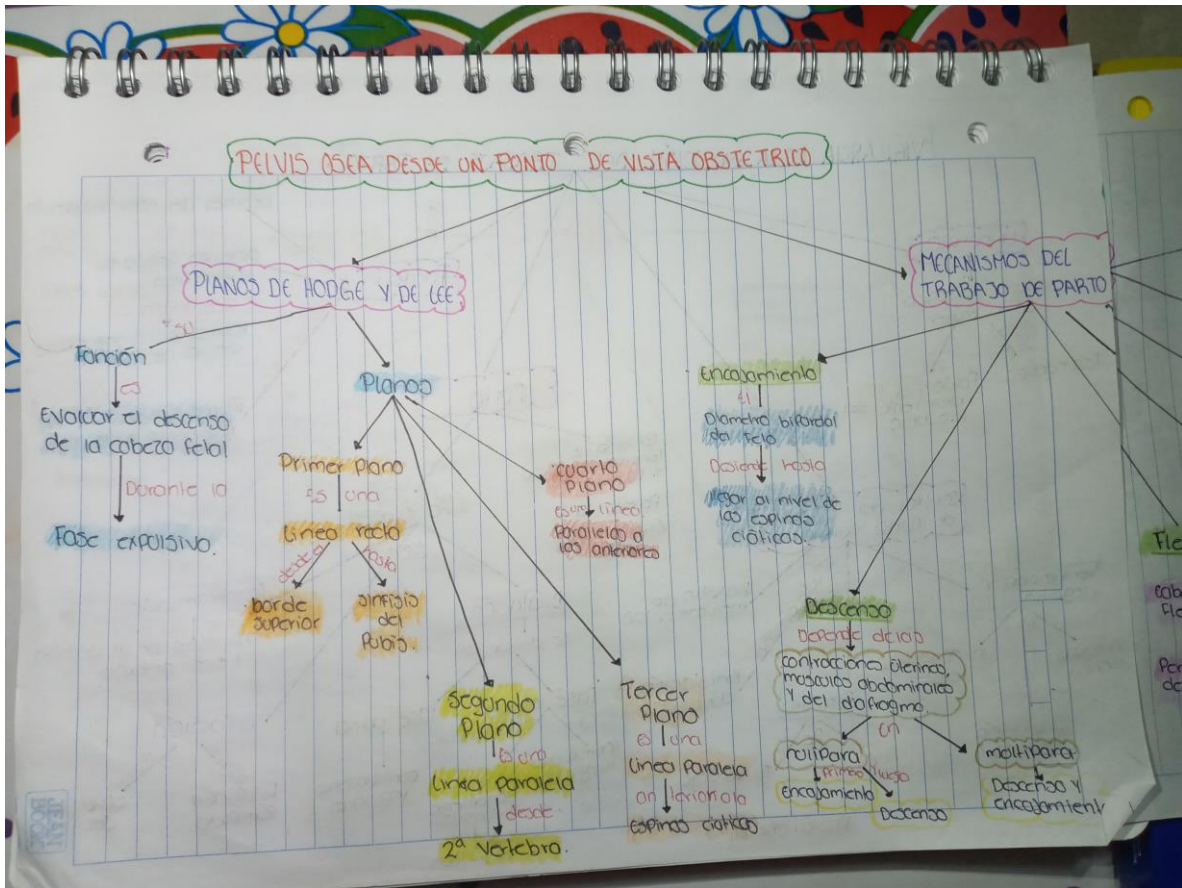 PELVIS OSEA DESDE UN PUNTO DE VISTA OBSTETRICO.
PLANOS DE HODGE Y DE LEE
Función
es
Evaluar el descenso
de la cabeza fetal
Durante la
Fase expulsiva.
Planos
Primer plano
Es una
Linea recta
desde
hasta
borde
superior
sinfisis
del
Pubis.
Segundo
Plano
Es una
Linea paralela
desde
2ª vertebra.
Tercer
Plano
es una
Linea Paralela
Espinas ciaticas
cuarto
Plano
es una linea
Paralelas a
las anteriores
MECANISMOS DEL
TRABAJO DE PARTO
Encajamiento
El
Diametro biparietal
del feto
Desiende hasta
llegar al nivel de
las espinas
ciáticas.
Descenso
Depende de las
contracciones Uterinas,
musculos abdominales
y del diafragma.
en
nulipara
primero
luego
Encajamiento
Descenso
multipara
Descenso y
encajamient
Fle
cab
Fle
de
JEAN
BOOK